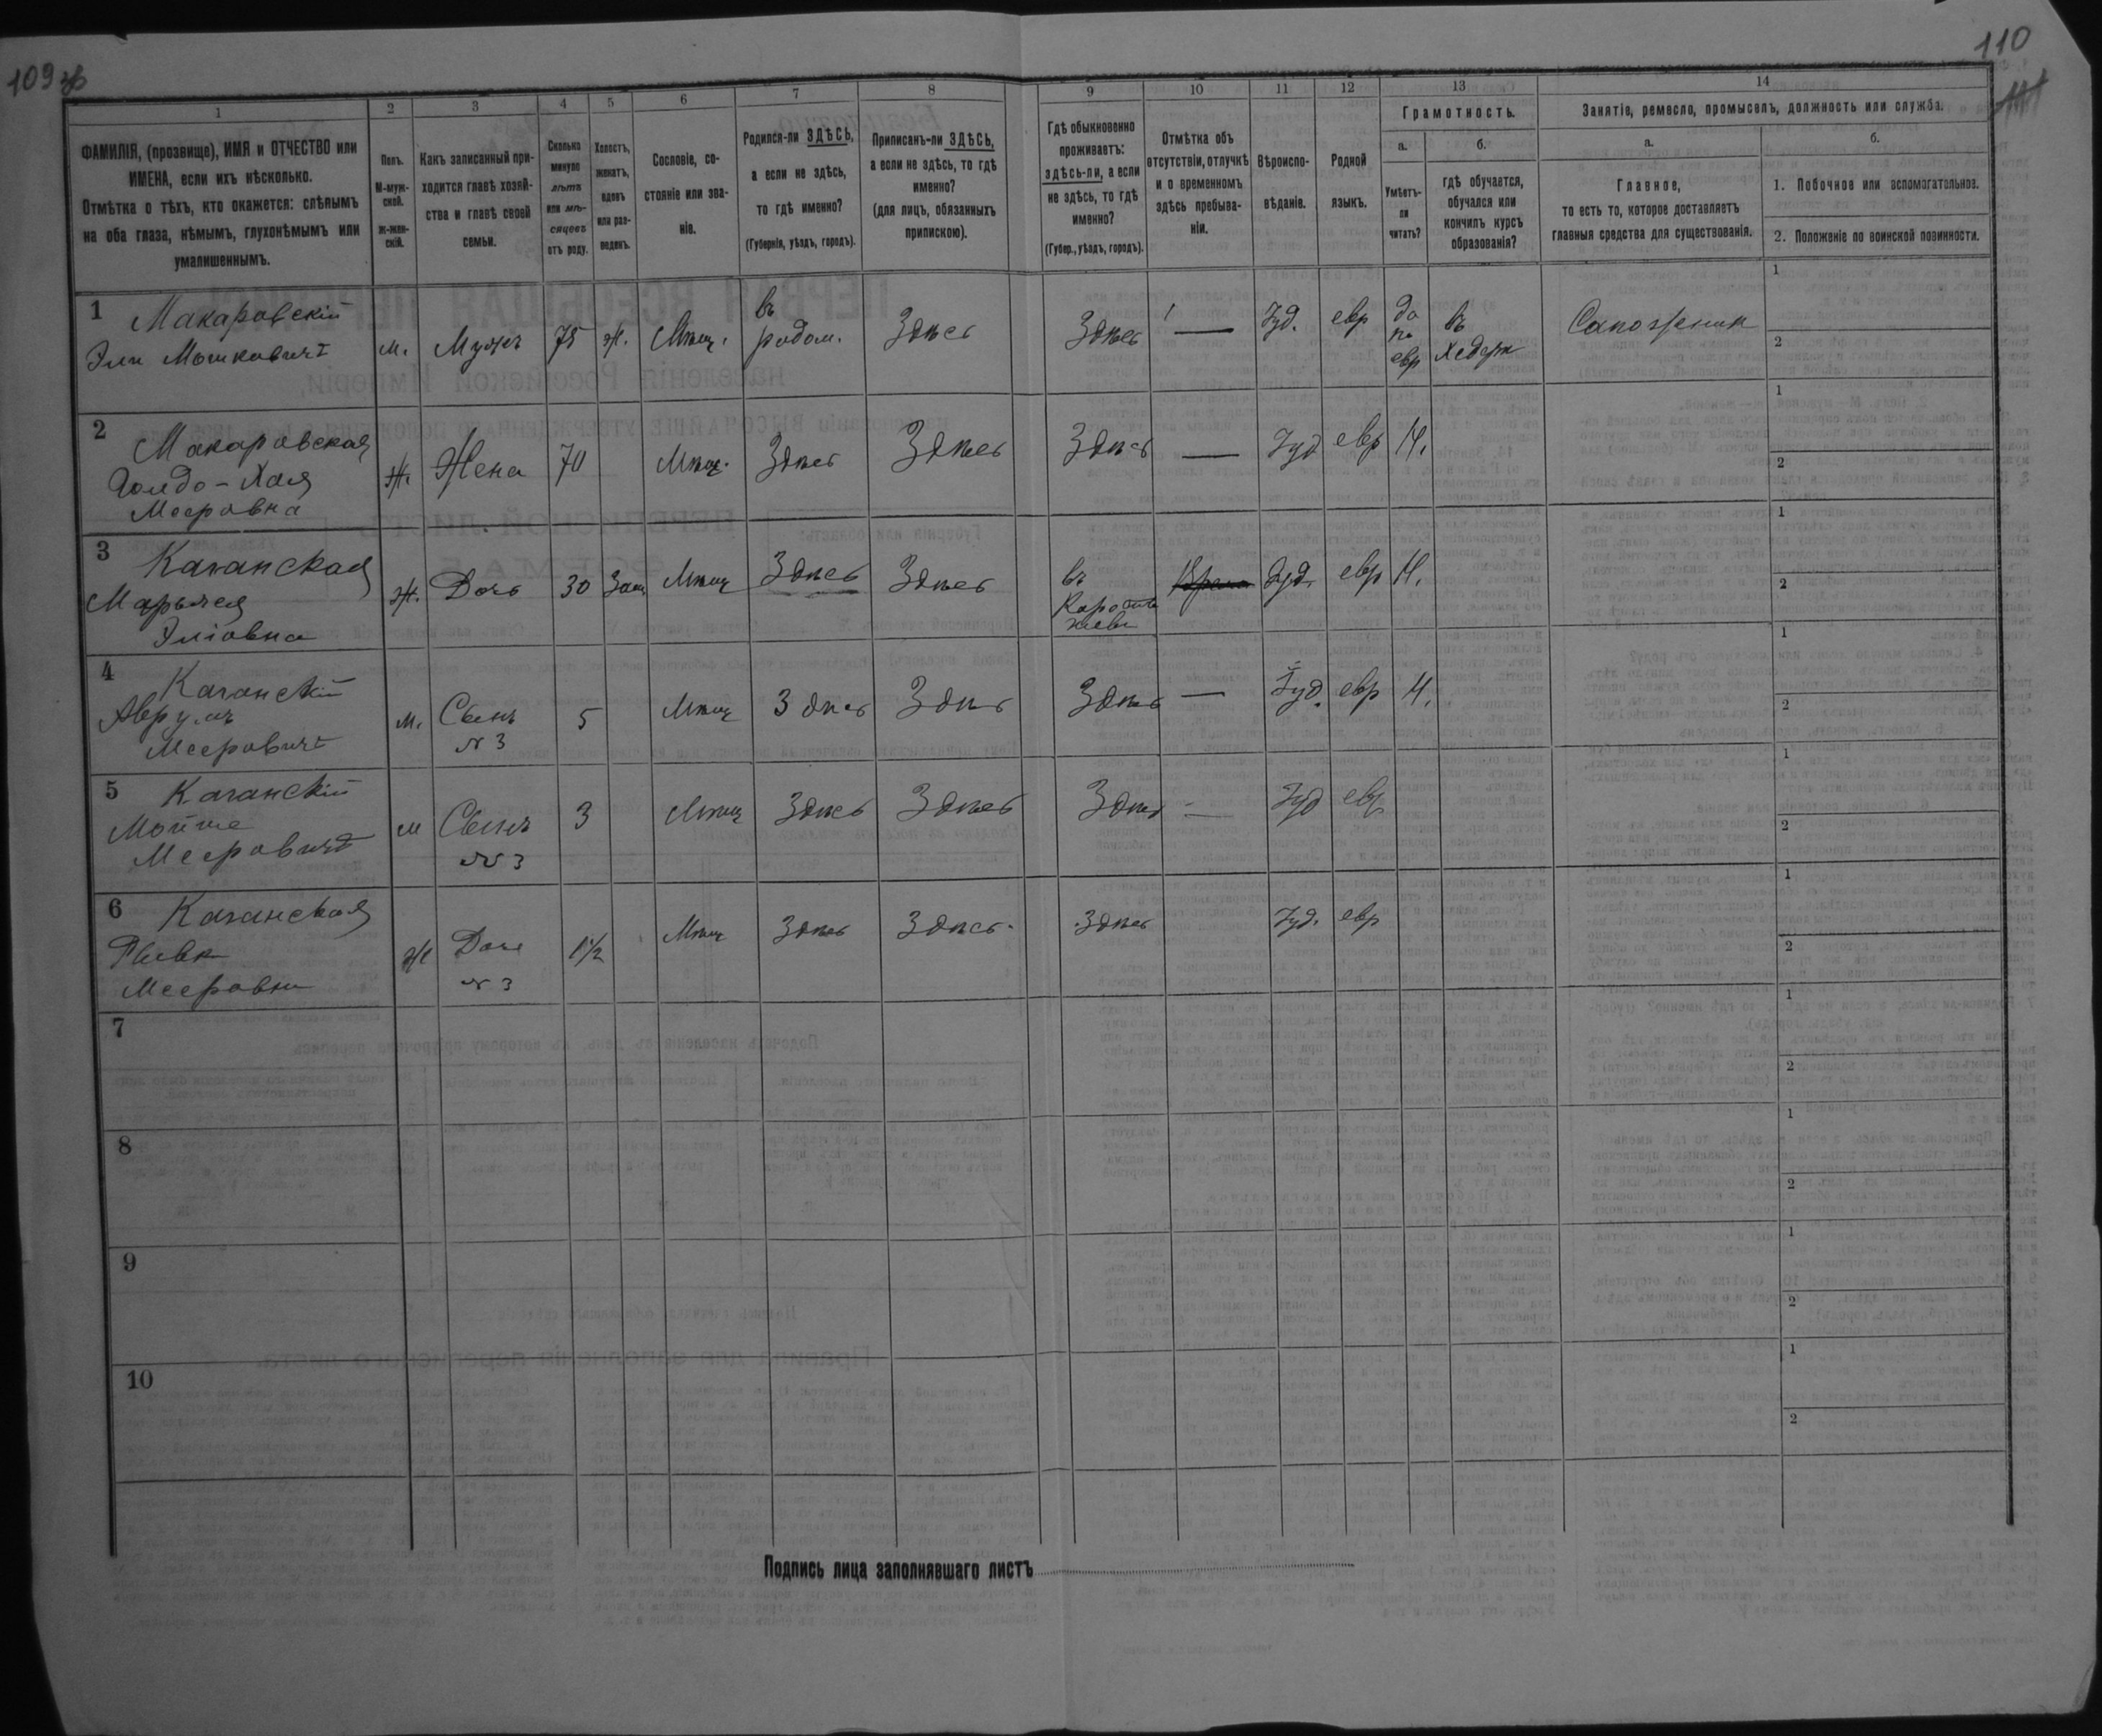 109 об
110
1
2
3
4
5
6
7
8
9
10
11
12
13
14
ФАМИЛІЯ, (прозвище), ИМЯ и ОТЧЕСТВО или
ИМЕНА, если ихъ нѣсколько.
Отмѣтка о тѣхъ, кто окажется: слѣпымъ
на оба глаза, нѣмымъ, глухонѣмымъ или
умалишеннымъ.
Полъ.
М-муж-
ской.
ж-жен-
скій.
Какъ записанный при-
ходится главѣ хозяй-
ства и главѣ своей
семьи.
Сколько
минуло
лѣтъ
или мѣ-
сяцовъ
отъ роду.
Холостъ,
женатъ,
вдовъ
или раз-
веденъ.
Сословіе, со-
стояніе или зва-
ніе.
Родился-ли ЗДѢСЬ,
а если не здѣсь,
то гдѣ именно?
(Губернія, уѣздъ, городъ).
Приписанъ-ли ЗДѢСЬ,
а если не здѣсь, то гдѣ
именно?
(для лицъ, обязанныхъ
припискою).
Гдѣ обыкновенно
проживаетъ:
здѣсь-ли, а если
не здѣсь, то гдѣ
именно?
(Губер., уѣздъ, городъ).
Отмѣтка объ
отсутствіи, отлучкѣ
и о временномъ
здѣсь пребыва-
ніи.
Вѣроиспо-
вѣданіе.
Родной
языкъ.
Грамотность.
а.
Умѣетъ-
ли
читать?
б.
гдѣ обучается,
обучался или
кончилъ курсъ
образованія?
Занятіе, ремесло, промыселъ, должность или служба.
а.
Главное,
то есть то, которое доставляетъ
главныя средства для существованія.
б.
1. Побочное или вспомогательное.
2. Положеніе по воинской повинности.
1 Макаровскій
Эли Мошковичъ
м. Мужъ 75 ж. Мѣщ. въ родом. Здѣсь Здѣсь — Іуд. евр да по евр въ Хедерѣ Сапожник
1
2
2 Макаровская
Голдо-Хая
Мееровна
ж. Жена 70 Мѣщ. Здѣсь Здѣсь Здѣсь — Іуд евр Н.
1
2
3 Каганская
Марьяся
Эліовна
ж. Дочь 30 Зам Мѣщ Здѣсь Здѣсь въ Іуд. евр Н.
1
2
4 Каганскій
Аврумъ
Мееровичъ
м. Сынъ N 3 5 Мѣщ Здѣсь Здѣсь Здѣсь — Іуд. евр Н.
1
2
5 Каганскій
Мойше
Мееровичъ
м Сынъ N 3 3 Мѣщ Здѣсь Здѣсь Здѣсь — Іуд евр
1
2
6 Каганская
Ривка
Мееровна
ж Дочь N 3 1½ Мѣщ Здѣсь Здѣсь. Здѣсь Іуд. евр
1
2
7
1
2
8
1
2
9
1
2
10
1
2
Подпись лица заполнявшаго листъ